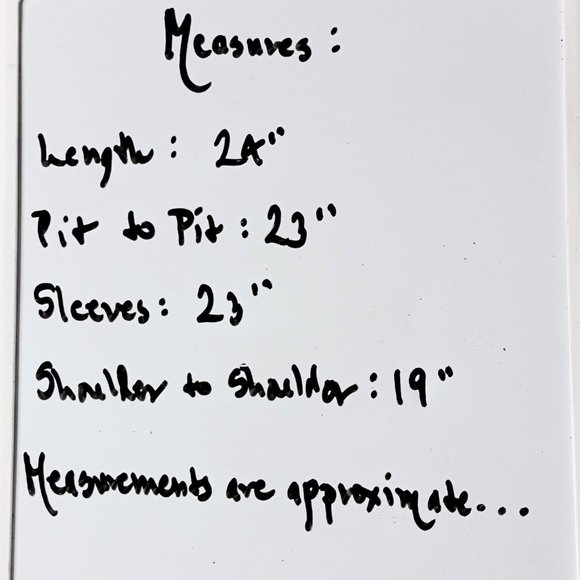 Measures:
Length: 24"
Pit to Pit: 23"
Sleeves: 23"
Shoulder to Shoulder: 19"
Measurements are approximate...